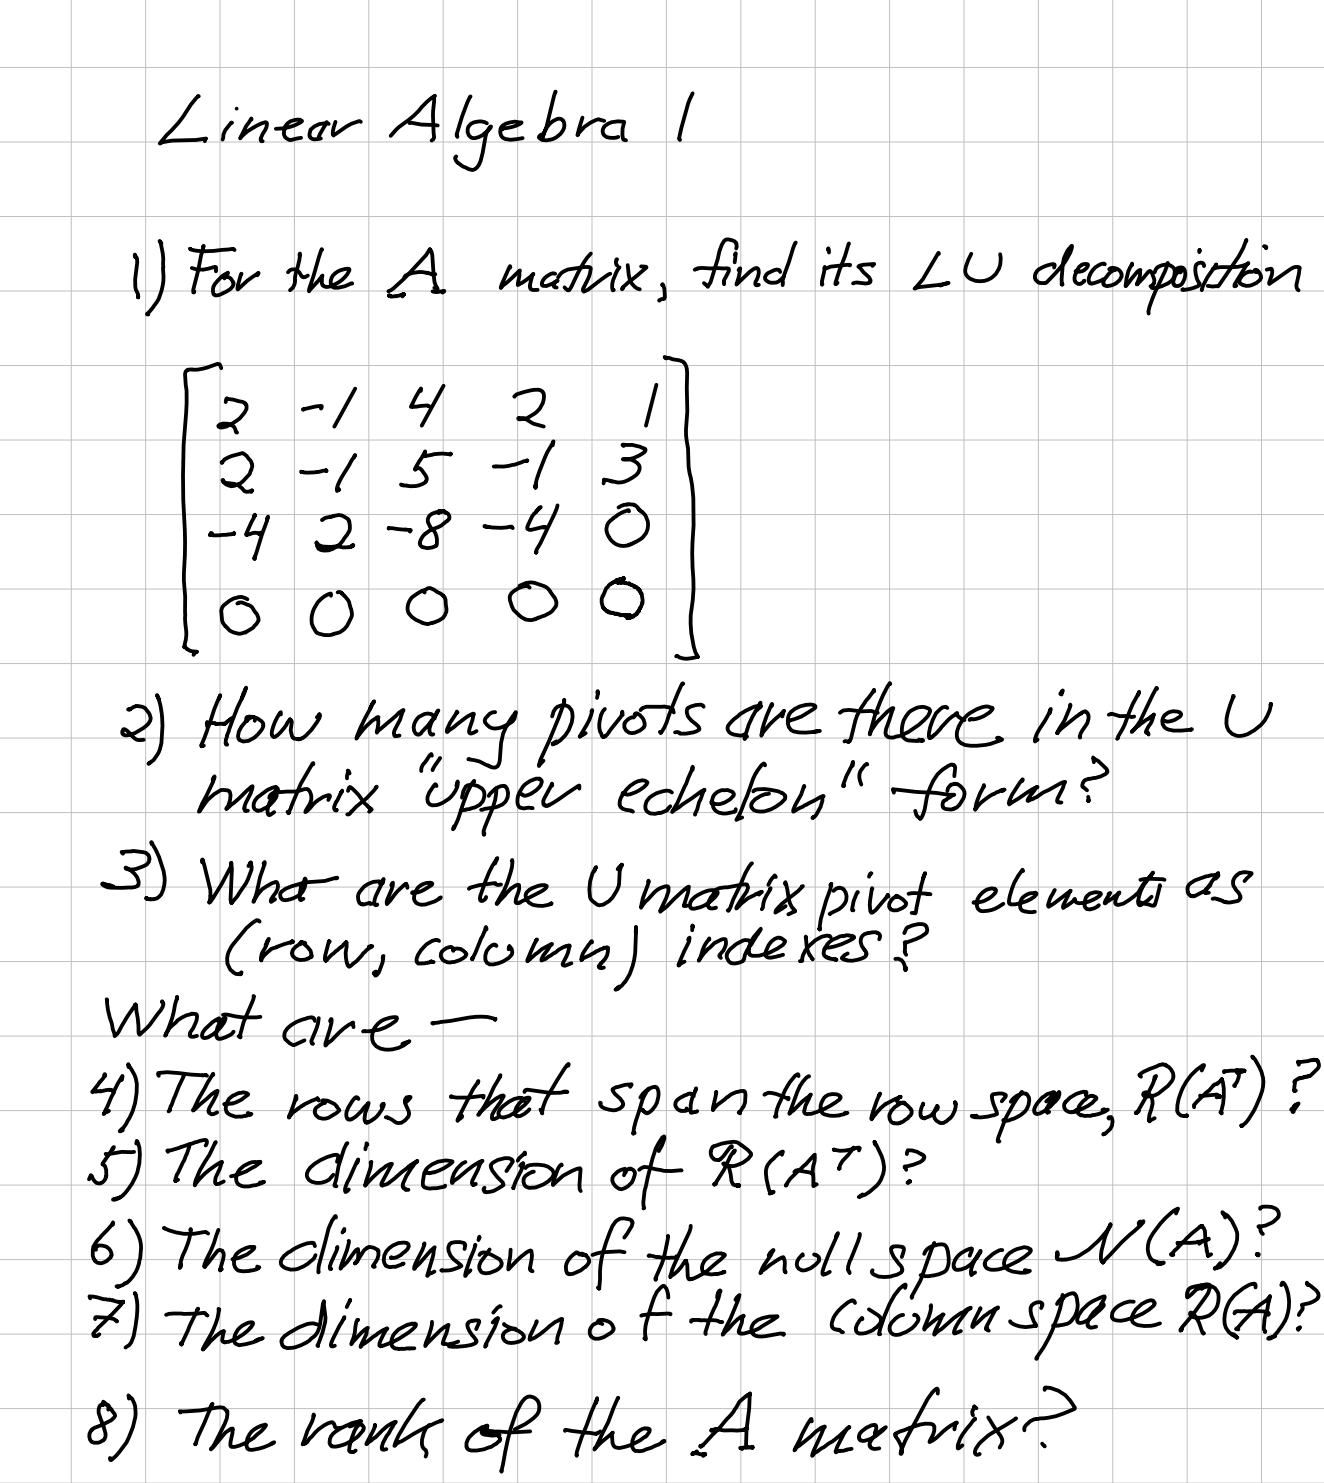 Linear Algebra 1
1) For the A matrix, find its LU decomposition
2 -1 4 2 1
2 -1 5 -1 3
-4 2 -8 -4 0
0 0 0 0 0
2) How many pivots are there in the U
matrix "upper echelon" form?
3) What are the U matrix pivot elements as
(row, column) indexes?
What are —
4) The rows that span the row space, R(Aᵀ)?
5) The dimension of R(Aᵀ)?
6) The dimension of the null space N(A)?
7) The dimension of the column space R(A)?
8) The rank of the A matrix?